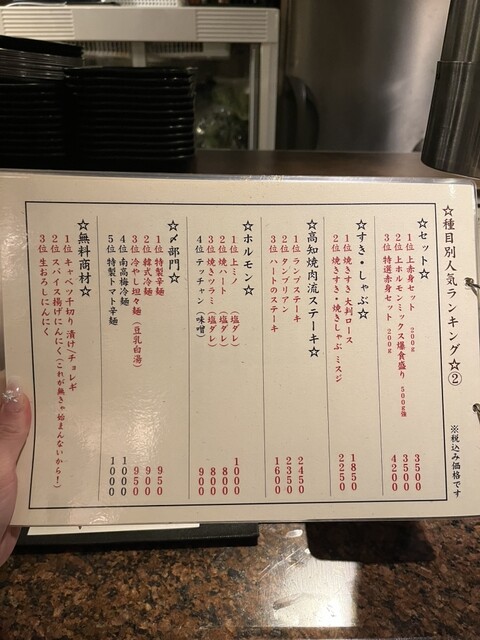 ☆種目別人気ランキング☆②
※税込み価格です
☆セット☆
1位 上赤身セット 200g 3500
2位 上ホルモンミックス爆食盛り 500g強 3500
3位 特選赤身セット 200g 4200
☆すき・しゃぶ☆
1位 焼きすき・大判ロース 1850
2位 焼きすき・焼きしゃぶ ミスジ 2250
☆高知焼肉流ステーキ☆
1位 ランプステーキ 2450
2位 タンブリアン 2350
3位 ハートのステーキ 1600
☆ホルモン☆
1位 上ミノ (塩ダレ) 1000
2位 ハート (塩ダレ) 800
3位 焼きツラミ (塩ダレ) 800
4位 テッチャン (味噌) 900
☆〆部門☆
1位 特製辛麺 950
2位 韓式冷麺 900
3位 冷やし坦々麺 (豆乳白湯) 950
4位 南高梅冷麺 1000
5位 特製トマト辛麺 1000
☆無料商材☆
1位 キャベツ千切り 漬け(チョレギ
2位 スパイス揚げにんにく(これが無きゃ始まんないから!)
3位 生おろしにんにく